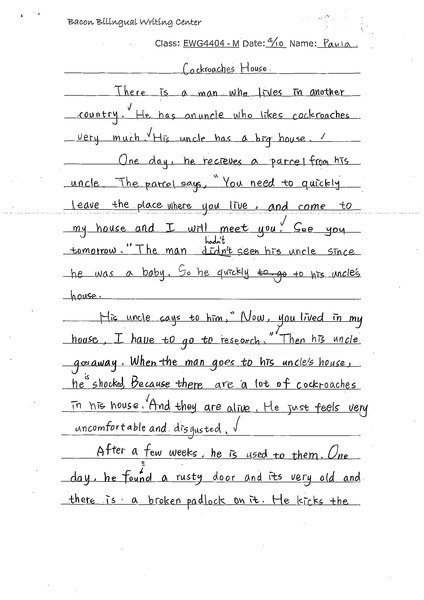 Bacon Bilingual Writing Center
Class: EWG4404 - M Date: 4/10 Name: Paula
Cockroaches House
There is a man who lives in another
country. He has an uncle who likes cockroaches
very much. His uncle has a big house.
One day, he recieves a parcel from his
uncle. The parcel says, "You need to quickly
leave the place where you live, and come to
my house and I will meet you. See you
tomorrow." The man didn't hadn't seen his uncle since
he was a baby. So he quickly to go to his uncle's
house.
His uncle says to him, "Now, you lived in my
house, I have to go to research." Then his uncle
go away. When the man goes to his uncle's house,
he is shocked, Because there are a lot of cockroaches
in his house. And they are alive. He just feels very
uncomfortable and disgusted.
After a few weeks, he is used to them. One
day, he found a rusty door and its very old and
there is a broken padlock on it. He kicks the